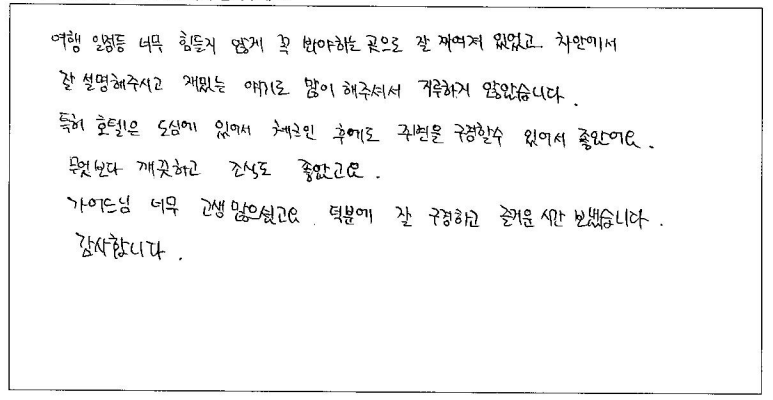 여행 일정등 너무 힘들지 않게 꼭 봐야하는 곳으로 잘 짜여져 있었고 차안에서
잘 설명해주시고 재밌는 얘기로 많이 해주셔서 지루하지 않았습니다.
특히 호텔은 도심에 있어서 체크인 후에도 주변을 구경할수 있어서 좋았어요.
무엇보다 깨끗하고 조식도 좋았고요.
가이드님 너무 고생많으셨고요 덕분에 잘 구경하고 즐거운 시간 보냈습니다.
감사합니다.